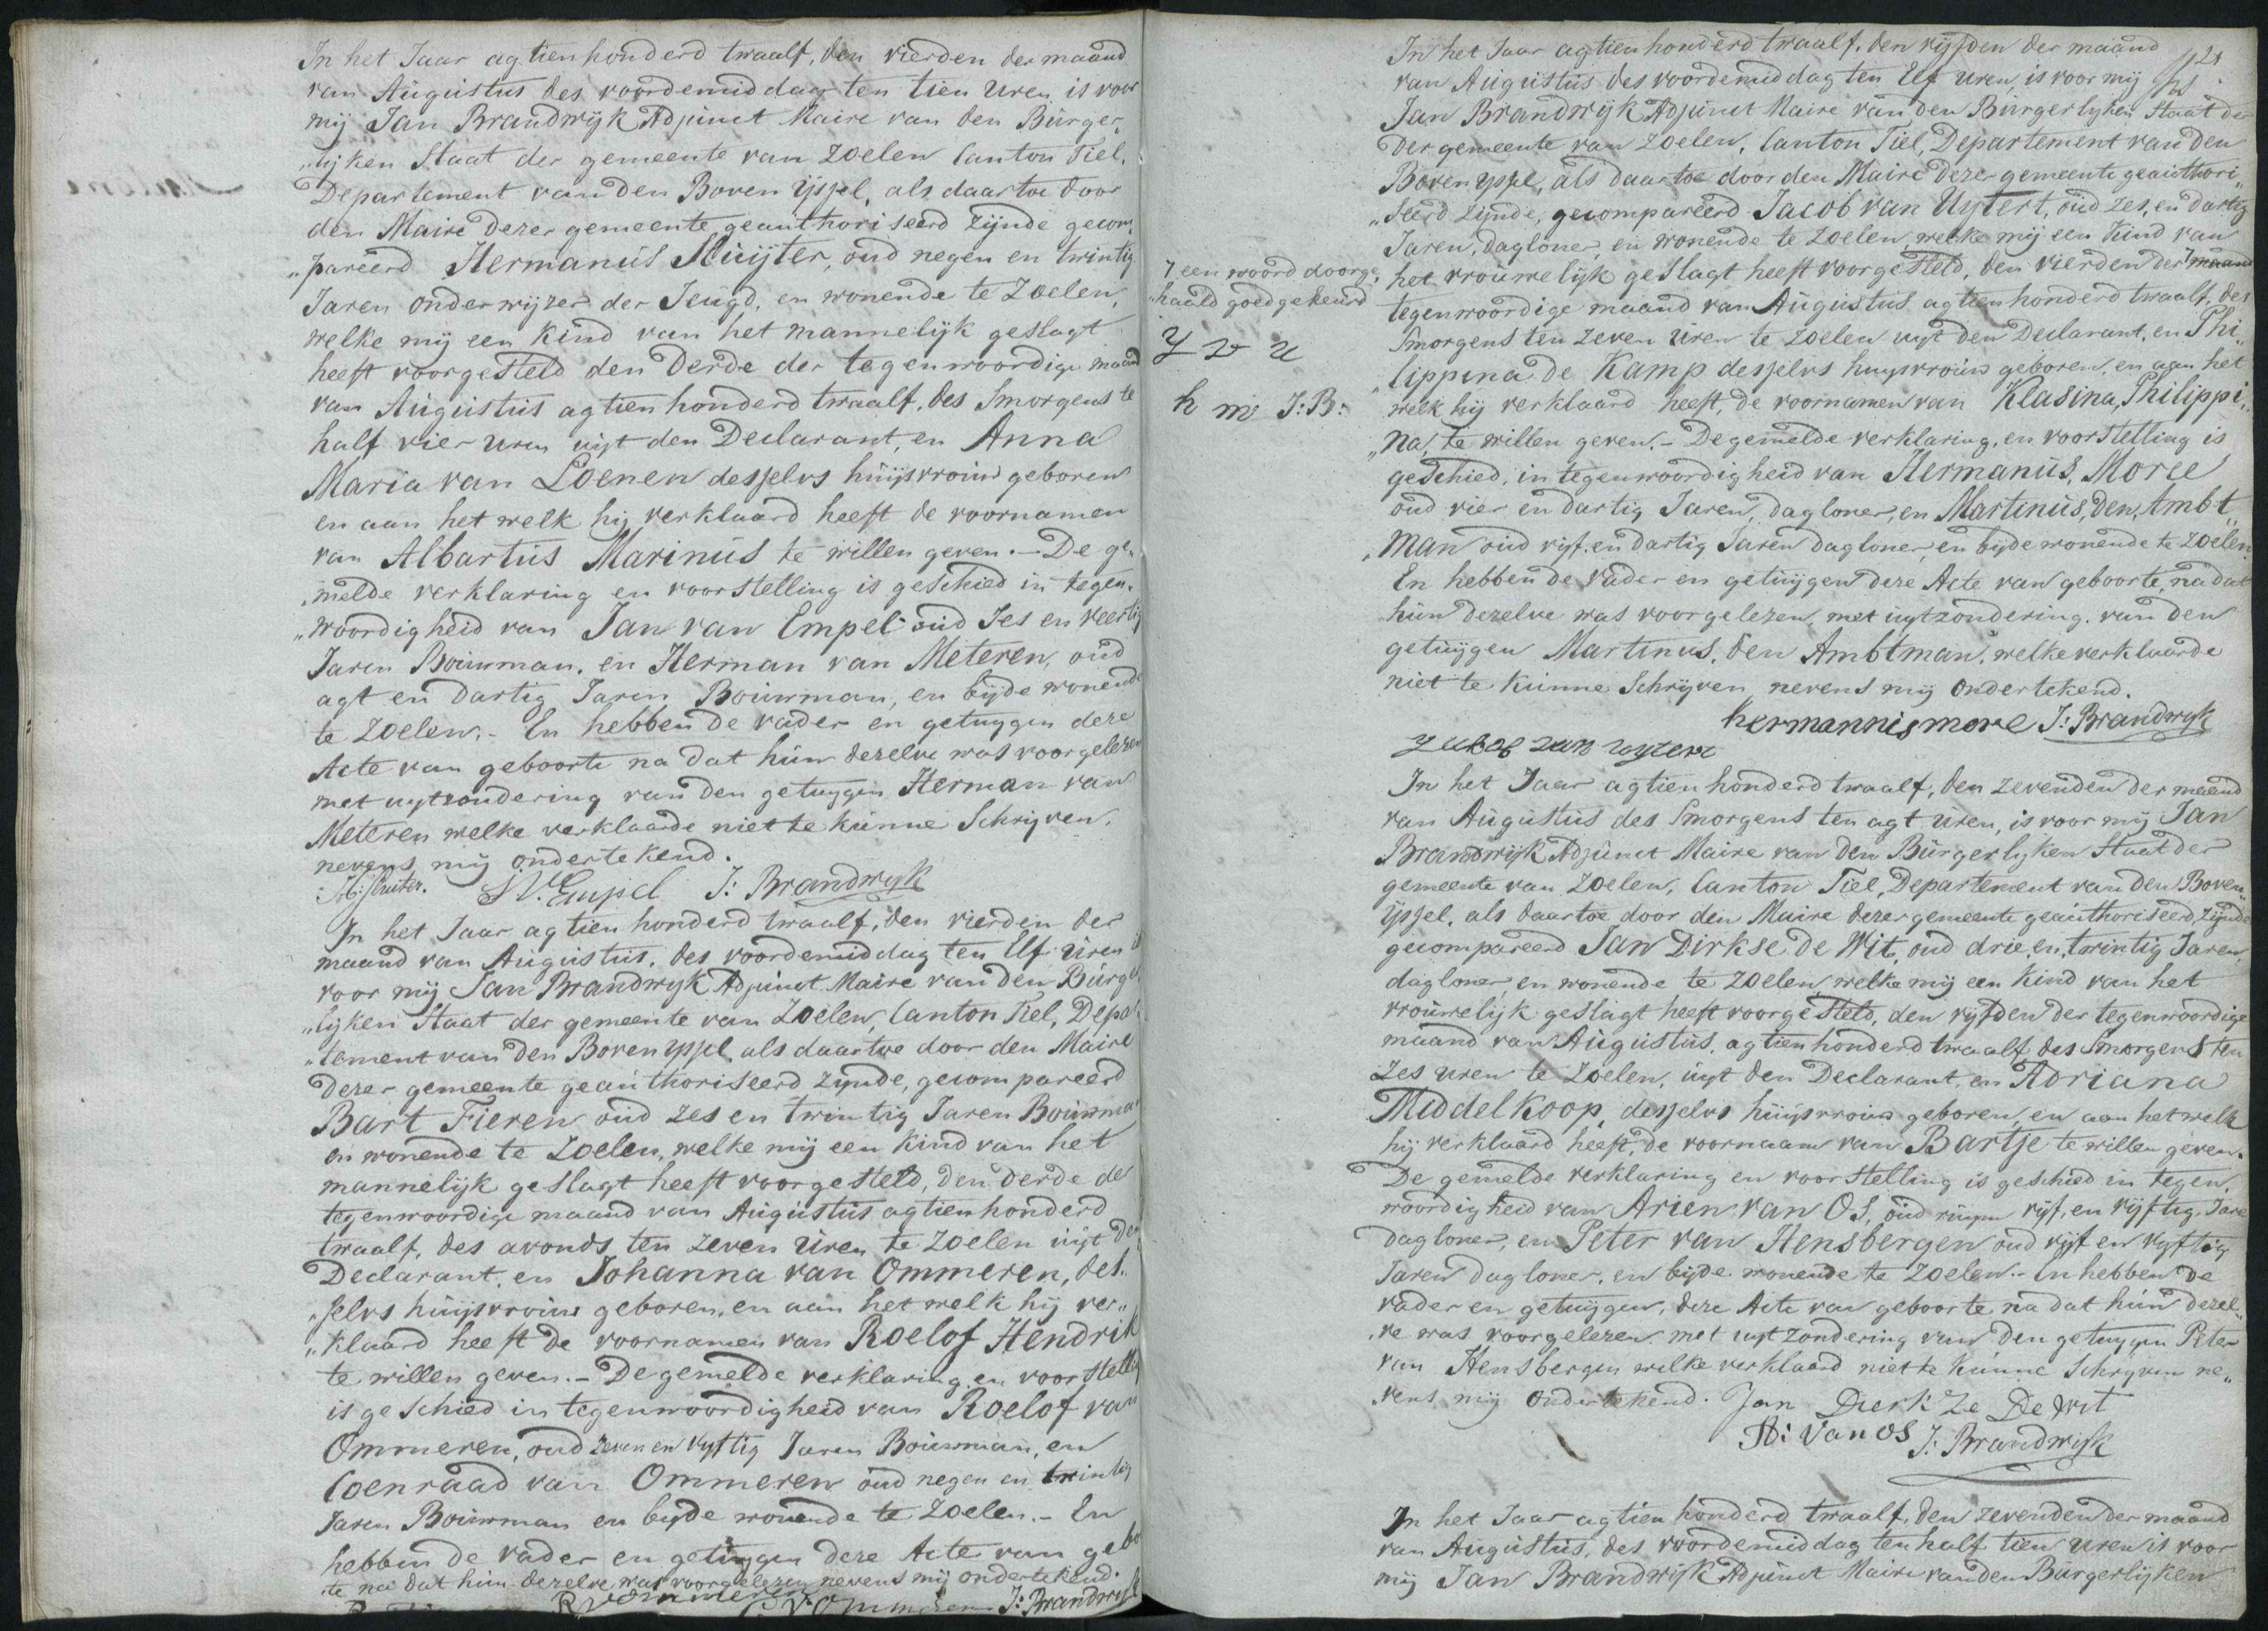 In het Jaar agtienhonderd twaalf, den vierden der maand
van Augustus des voordemiddag ten tien Uren, is voor
mij Jan Brandwijk Adjunct Maire van den Burger„
„lijken Staat der gemeente van Zoelen Canton Tiel,
Departement van den Boven Yssel, als daartoe door
den Maire dezer gemeente geauthoriseerd zijnde gecom„
„pareerd Hermanus Sluijter, oud negen en twintig
Jaren onderwijzer der Jeugd, en wonende te Zoelen,
welke mij een kind van het mannelijk geslagt
heeft voorgesteld den derde der tegenwoordige maand
van Augustus agtienhonderd twaalf, des Smorgens te
half vier uren uijt den Declarant, en Anna
Maria van Loenen desselvs huijsvrouw geboren
en aan het welk hij verklaard heeft de voornamen
van Albartus Marinus te willen geven. — De ge„
„melde verklaring en voorstelling is geschied in tegen„
„woordigheid van Jan van Empel oud Ses en veertig
Jaren Bouwman, en Herman van Meteren, oud
agt en dartig Jaren Bouwman, en bijde wonende
te Zoelen. - En hebben de vader en getuygen deze
Acte van geboorte na dat hun dezelve was voorgelezen
met uytzondering van den getuygen Herman van
Meteren welke verklaarde niet te kunne Schrijven,
nevens mij ondertekend.
H: Sluiter. J V. Empel J: Brandwyk
In het Jaar agtienhonderd twaalf, den vierden der
maand van Augustus, des voordemiddag ten Elf Uren is
voor mij Jan Brandwyk Adjunct Maire van den Burger
„lijken Staat der gemeente van Zoelen, Canton Tiel, Depar
„tement van den Boven Yssel als daartoe door den Maire
dezer gemeente geauthoriseerd zynde, gecompareerd
Bart Fieren oud zes en twintig Jaren Bouwman
en wonende te Zoelen, welke mij een Kind van het
mannelijk geslagt heeft voorgesteld, den derde de
tegenwoordige maand van Augustus agtienhonderd
twaalf, des avonds ten zeven Uren te Zoelen uijt den
Declarant, en Johanna van Ommeren, des„
„selvs huijsvrouw geboren, en aan het welk hij ver„
„klaard heeft de voornamen van Roelof Hendrik
te willen geven. - De gemelde verklaring en voorstelling
is geschied in tegenwoordigheid van Roelof van
Ommeren, oud zeven en vyftig Jaren Bouwman, en
Coenraad van Ommeren oud negen en twintig
Jaren Bouwman en byde wonende te Zoelen. - En
hebben de vader en getuygen deze Acte van gebo
te na dat hun dezelve was voorgelezen nevens mij ondertekend.
R v ommeren C V. Ommeren J: Brandwyk
In het Jaar agtienhonderd twaalf, den vyfden der maand
van Augustus des voordemiddag ten Elf uren, is voor mij
Jan Brandwyk Adjunct Maire van den Burgerlyken Staat der
der gemeente van Zoelen, Canton Tiel, Departement van den
Boven Yssel, als daartoe door den Maire dezer gemeente geauthori„
„seerd zijnde, gecompareerd Jacob van Uytert, oud zes, en dartig
Jaren, dagloner, en wonende te Zoelen, welke mij een kind van
het vrouwelijk geslagt heeft voorgesteld, den vierden der maand
tegenwoordige maand van Augustus agtienhonderd twaalf, des
Smorgens ten zeven Uren te Zoelen uyt den Declarant, en Phi„
„lippina de Kamp desselvs huysvrouw geboren, en aan het
welk hij verklaard heeft, de voornamen van Klasina, Philippi„
„na, te willen geven. - De gemelde verklaring, en voorstelling is
geschied, in tegenwoordigheid van Hermanus, Moree
oud vier en dartig Jaren, dagloner, en Martinus, den, Ambt„
„man oud vyf en dartig Jaren dagloner, en bijde wonende te Zoelen.
En hebben de vader en getuijgen deze Acte van geboorte, na dat
hun dezelve was voorgelezen, met uytzondering van den
getuijgen Martinus, den Ambtman, welke verklaarde
niet te kunne Schrijven nevens mij ondertekend.
hermannis more J: Brandwyk
Jacob van uytert
7 een woord doorge„
„haald goedgekeurd
J v u
h m J: B:
In het Jaar agtienhonderd twaalf, den zevenden der maand
van Augustus des Smorgens ten agt uren, is voor mij Jan
Brandwijk Adjunct Maire van den Burgerlyken Staat der
gemeente van Zoelen, Canton Tiel, Departement van den Boven„
Yssel, als daartoe door den Maire dezer gemeente geauthoriseerd zijnde
gecompareerd Jan Dirkse de Wit, oud drie, en, twintig Jaren,
dagloner, en wonende te Zoelen, welke mij een Kind van het
vrouwelijk geslagt heeft voorgesteld, den vyfden der tegenwoordige
maand van Augustus, agtienhonderd twaalf, des Smorgens ten
Zes uren te Zoelen, uyt den Declarant, en Adriana
Middelkoop, desselvs huijsvrouw geboren, en aan het welk
hij verklaard heeft, de voornaam van Bartje te willen geven.
De gemelde verklaring en voorstelling is geschied in tegen„
woordigheid van Arien van Os, oud vyf, en vijftig, Jare
Dagloner, en Peter van Hensbergen oud vyf en vyftig
Jaren dagloner, en bijde wonende te Zoelen. - En hebben de
vader en getuijgen, deze Acte van geboorte na dat hun dezel„
„ve was voorgelezen met uytzondering van den getuygen Peter
van Hensbergen welke verklaard niet te kunne Schryven ne„
„vens mij ondertekend. Jan Dierk Ze De Wit
A: van os J: Brandwyk
In het Jaar agtienhonderd twaalf, den zevenden der maand
van Augustus, des voordemiddag ten half tien uren is voor
mij Jan Brandwijk Adjunct Maire van den Burgerlijken